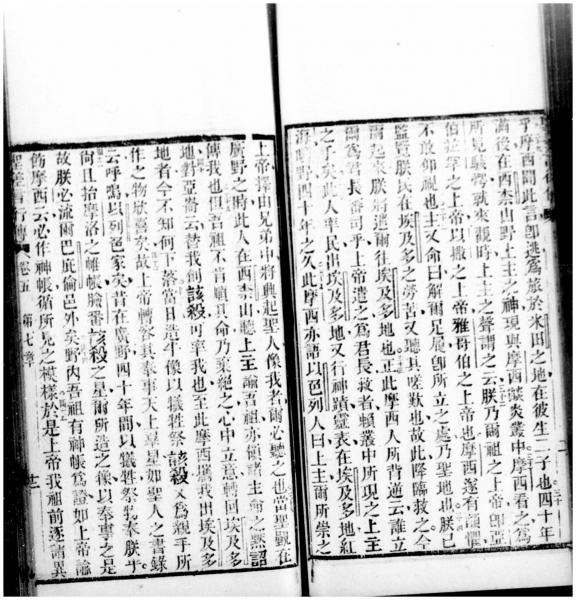 乎摩西聞此言卽逃爲旅於米田之地在彼生二子也四十年
滿後在西柰山野上主之神現與摩西燄炎叢中摩西看之爲
所見駭愕就來觀時上主之聲謂之云朕乃爾祖之上帝卽亞
伯拉罕之上帝以撒之上帝雅哥伯之上帝也摩西遂有顫慄
不敢仰視也主又命曰解爾足屨卽所立之處乃聖地也朕已
監覽朕民在埃及多之勞苦又聽其嗟歎也故此降臨救之今
爾起來朕將遣爾往埃及多地也正此摩西人所背逆云誰立
爾爲君長審司乎上帝遣之爲君長救者賴叢中所現之上主
之子矣此人率民出埃及多地又行神蹟靈表在埃及多地紅
海曠野四十年之久此摩西亦語以色列人曰上主爾所崇之
上帝擇由兄弟中將興起聖人像我者爾必聽之也當聖觀在
廣野之時此人在西柰山聽上主諭吾祖亦領諸主命之默詔
傳我也但吾祖不肯順其命乃棄絕之心中立意轉回埃及多
地對亞崙云替我創該殺可率我也至此摩西攜我出埃及多
地者今不知何下落當日造牛像以犧牲祭該殺又爲親手所
作之物欣喜矣故上帝轉容其奉事天上羣星如聖人之書錄
云呼嗚以列邑家矣昔在廣野四十年間以犧牲祭物奉朕乎
尙且抬摩洛之帷帳臉番該殺之星爾所造之像以奉事之是
故朕必流爾巴庇倫邑外矣野內吾祖有神帳爲證如上帝諭
飾摩西云必作神帳循所見之模樣於是上帝我祖前逐諸異
聖差言行傳 卷五 第七章